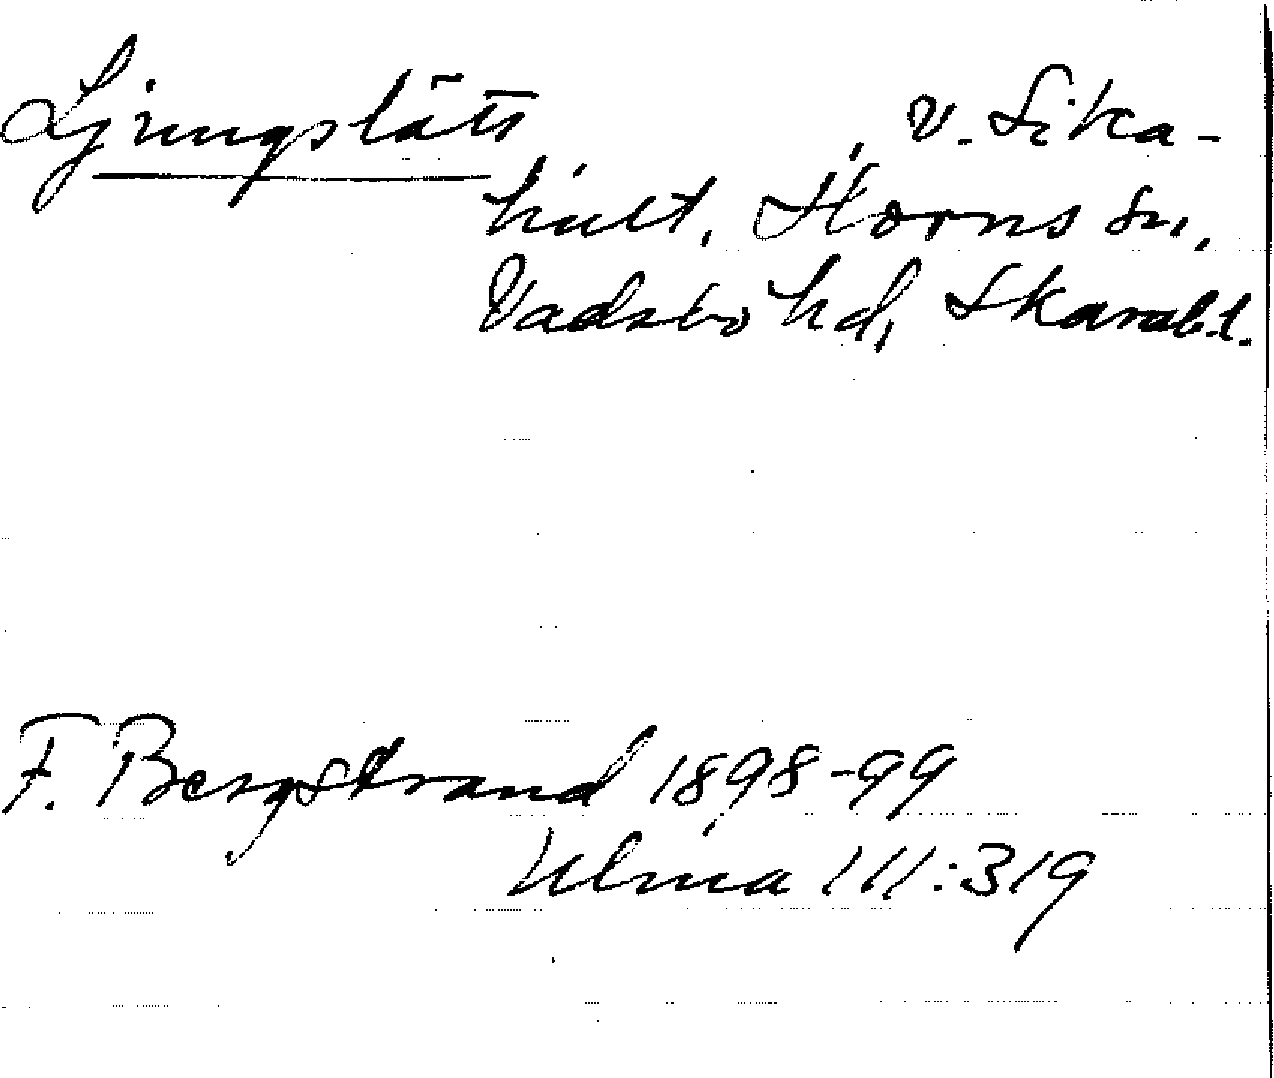 Ljungslätt, v. Sika-
hult, Horns sn,
Vadsbo hd, Skarab.l.
F. Bergstrand 1898-99
Ulma 111:319